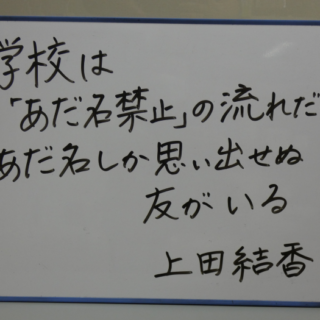 学校は
「あだ名禁止」の流れだ
あだ名しか思い出せぬ
友がいる
上田結香